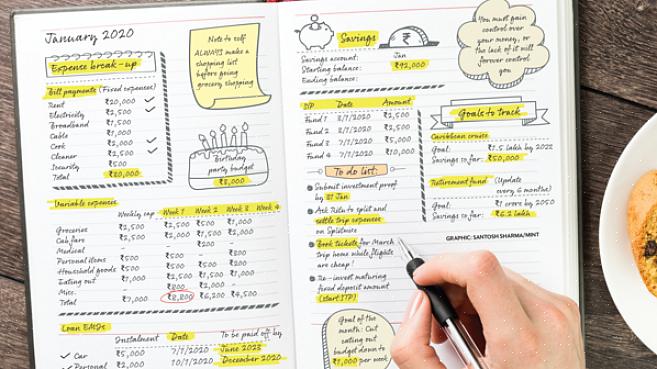 January 2020
Expense break-up
Bill payments (Fixed expenses)
Rent ₹20,000
Electricity ₹2,500
Broadband ₹1,500
Cable ₹1,000
Cook ₹2,000
Cleaner ₹2,500
Security ₹500
Total ₹30,000
Note to self
ALWAYS make a
shopping list
before going
grocery shopping
Birthday
party budget
₹8,000
Variable expenses
Weekly cap Week 1 Week 2 Week 3 Week 4
Groceries ₹2,500 ₹2,500 ₹2,000 ₹2,500
Cab fare ₹2,000 ₹1,500 ₹2,000
Medical - - ₹200 -
Personal items ₹500 ₹500 - -
Household goods ₹500 - ₹200 -
Eating out ₹1,000 ₹2,500
Misc.
Total ₹7,000 ₹8,800 ₹6,200 ₹4,500
Loan EMIs
Instalment Date To be paid off by
Car ₹5,000 7/1/2020 June 2023
Personal ₹2,000 10/1/2020 December 2020
Savings
Jan
Savings account:
Starting balance: ₹92,000
Ending balance:
SIP Date Amount
Fund 1 3/1/2020 ₹2,500
Fund 2 ₹2,500
Fund 3 7/1/2020 ₹5,000
Fund 4 7/1/2020 ₹10,000
To do list:
Submit investment proof
by 31 Jan
Ask Ritu to split and
settle trip expenses
on Splitwise
Book tickets for March
trip home while flights
are cheap!
Re-invest maturing
fixed deposit amount
(start STP)
Goal of the
month: Cut
eating out
budget down to
₹1,000 per week
You must gain
control over
your money, or
the lack of it will
forever control
you
Goals to track
Caribbean cruise
Goal: ₹1.5 lakh by 2022
Savings so far: ₹50,000
Retirement fund (Update
every 6 months)
Goal: ₹1 crore by 2050
Savings so far: ₹6.2 lakh
GRAPHIC: SANTOSH SHARMA/MINT